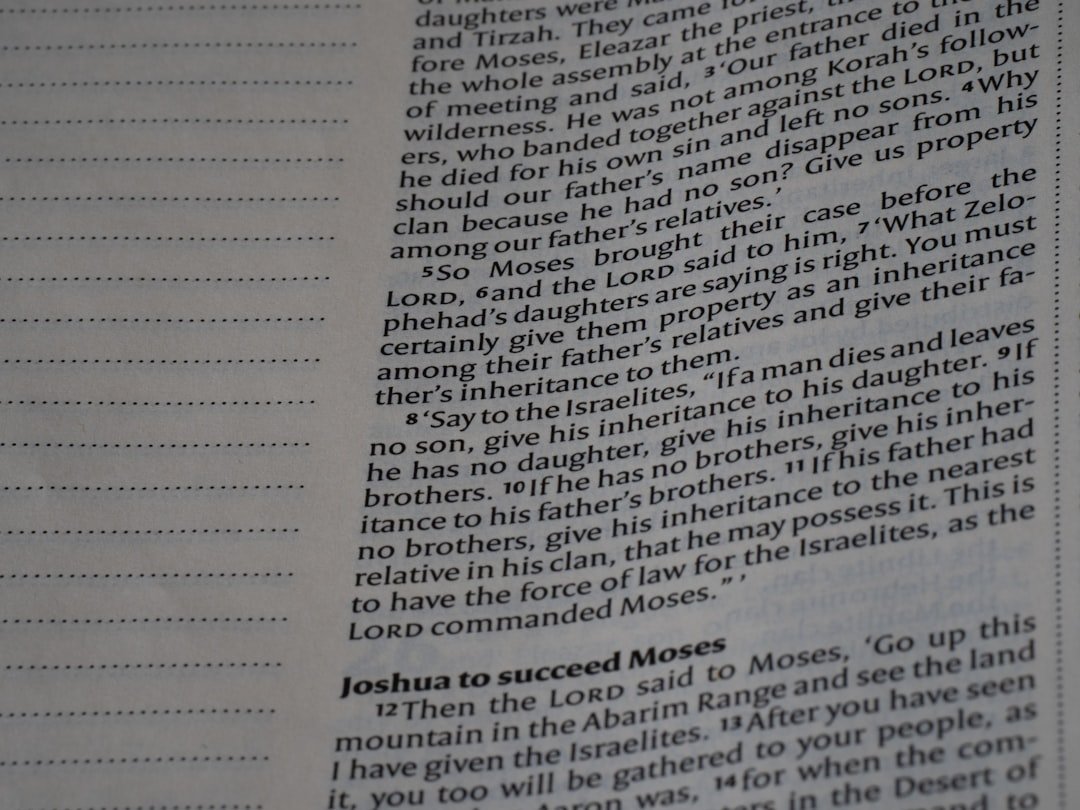 daughters were
and Tirzah. They came
fore Moses, Eleazar the priest,
the whole assembly at the entrance to the
of meeting and said, 3 ‘Our father died in the
wilderness. He was not among Korah’s follow-
ers, who banded together against the LORD, but
he died for his own sin and left no sons. 4 Why
should our father’s name disappear from his
clan because he had no son? Give us property
among our father’s relatives.’
5 So Moses brought their case before the
LORD, 6 and the LORD said to him, 7 ‘What Zelo-
phehad’s daughters are saying is right. You must
certainly give them property as an inheritance
among their father’s relatives and give their fa-
ther’s inheritance to them.
8 ‘Say to the Israelites, “If a man dies and leaves
no son, give his inheritance to his daughter. 9 If
he has no daughter, give his inheritance to his
brothers. 10 If he has no brothers, give his inher-
itance to his father’s brothers. 11 If his father had
no brothers, give his inheritance to the nearest
relative in his clan, that he may possess it. This is
to have the force of law for the Israelites, as the
LORD commanded Moses.” ’
Joshua to succeed Moses
12 Then the LORD said to Moses, ‘Go up this
mountain in the Abarim Range and see the land
I have given the Israelites. 13 After you have seen
it, you too will be gathered to your people, as
Aaron was, 14 for when the com-
in the Desert of
to